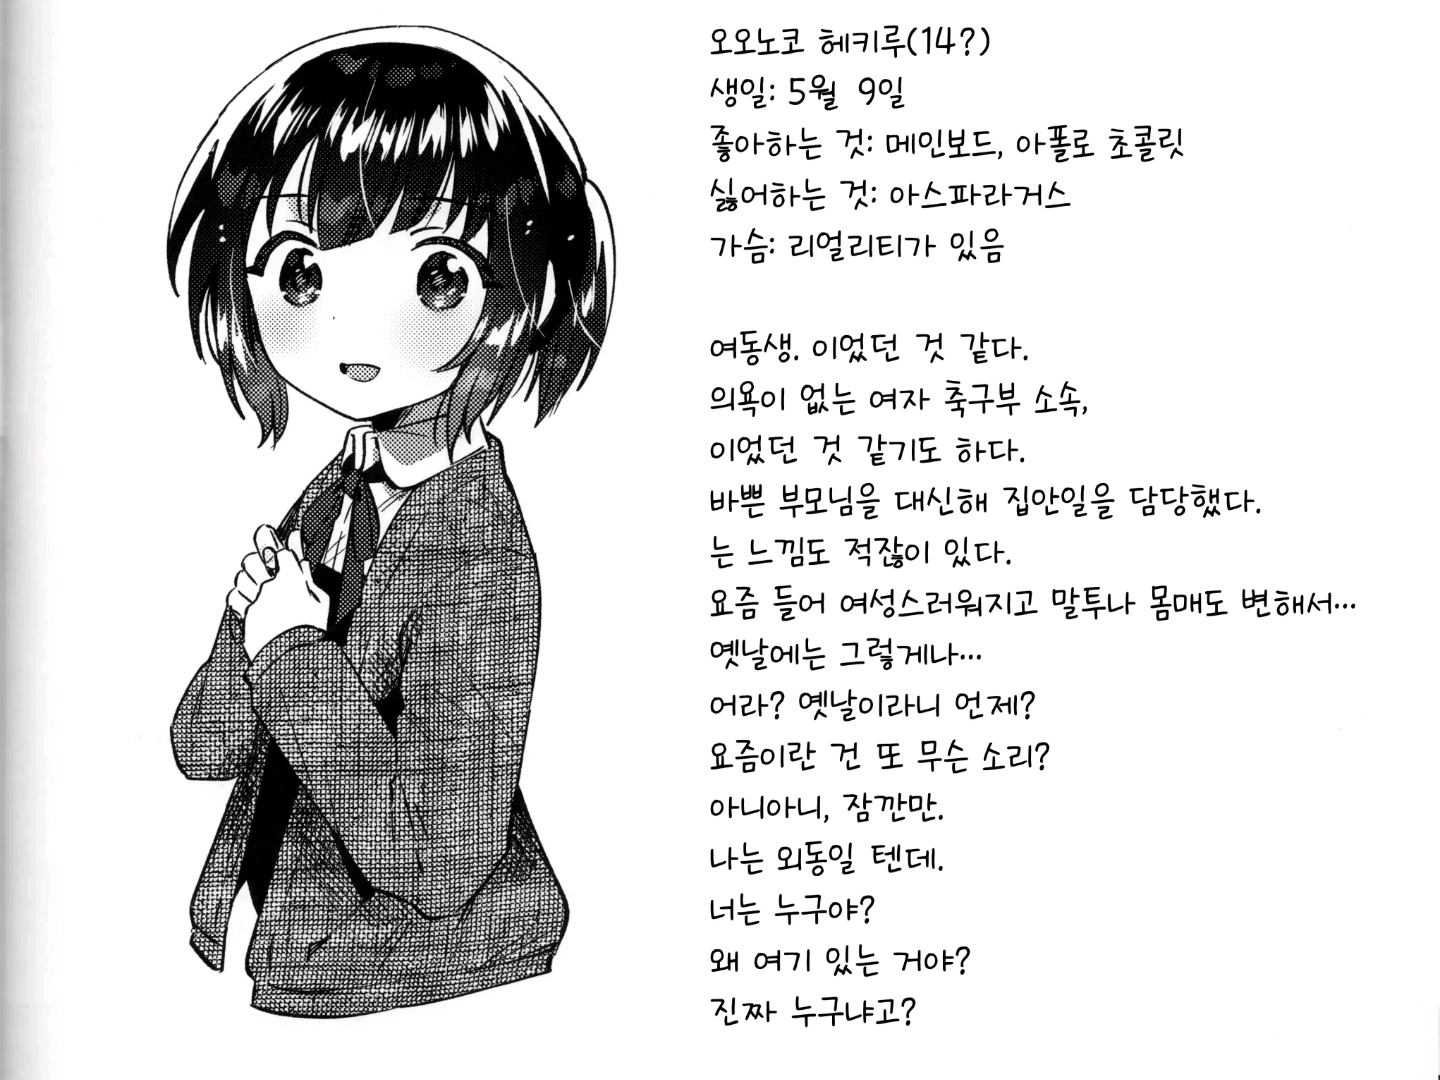 오오노코 헤키루(14?)
생일: 5월 9일
좋아하는 것: 메인보드, 아폴로 초콜릿
싫어하는 것: 아스파라거스
가슴: 리얼리티가 있음
여동생. 이었던 것 같다.
의욕이 없는 여자 축구부 소속,
이었던 것 같기도 하다.
바쁜 부모님을 대신해 집안일을 담당했다.
는 느낌도 적잖이 있다.
요즘 들어 여성스러워지고 말투나 몸매도 변해서…
옛날에는 그렇게나…
어라? 옛날이라니 언제?
요즘이란 건 또 무슨 소리?
아니아니, 잠깐만.
나는 외동일 텐데.
너는 누구야?
왜 여기 있는 거야?
진짜 누구냐고?